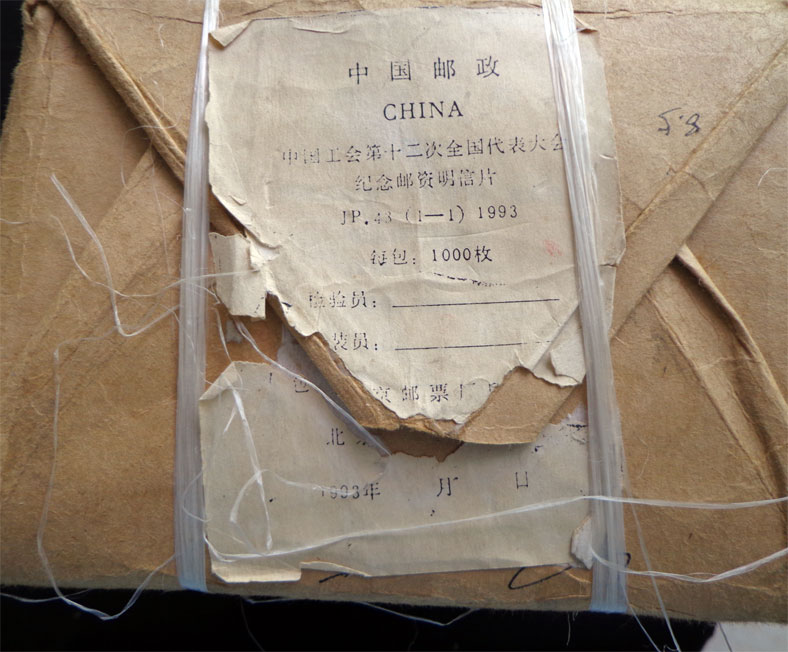 中国邮政
CHINA
中国工会第十二次全国代表大会
纪念邮资明信片
JP.43 (1—1) 1993
每包: 1000枚
检验员:
装员:
包 京邮票厂
北
1993年 月 日